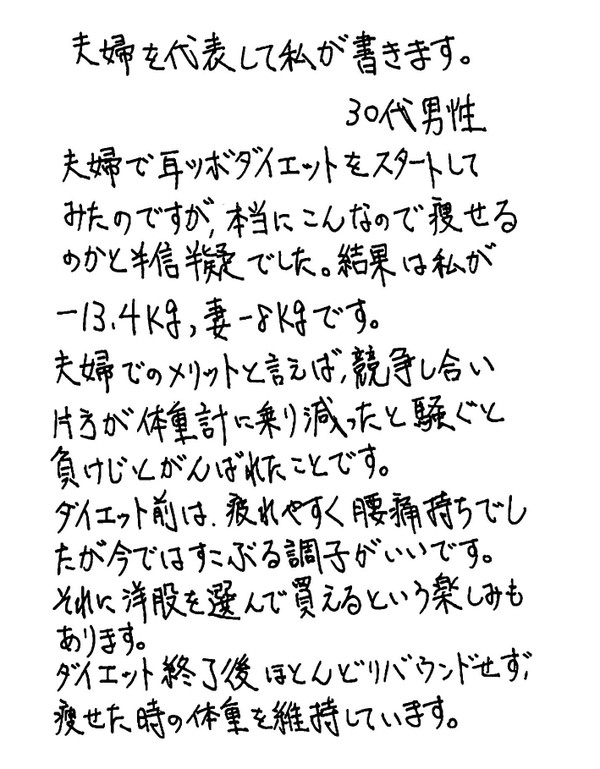 夫婦を代表して私が書きます。
30代男性
夫婦で耳ツボダイエットをスタートして
みたのですが、本当にこんなので痩せる
のかと半信半疑でした。結果は私が
-13.4Kg、妻-8Kgです。
夫婦でのメリットと言えば、競争し合い
片方が体重計に乗り減ったと騒ぐと
負けじとがんばれたことです。
ダイエット前は、疲れやすく腰痛持ちでし
たが今ではすこぶる調子がいいです。
それに洋服を選んで買えるという楽しみも
あります。
ダイエット終了後ほとんどリバウンドせず、
痩せた時の体重を維持しています。